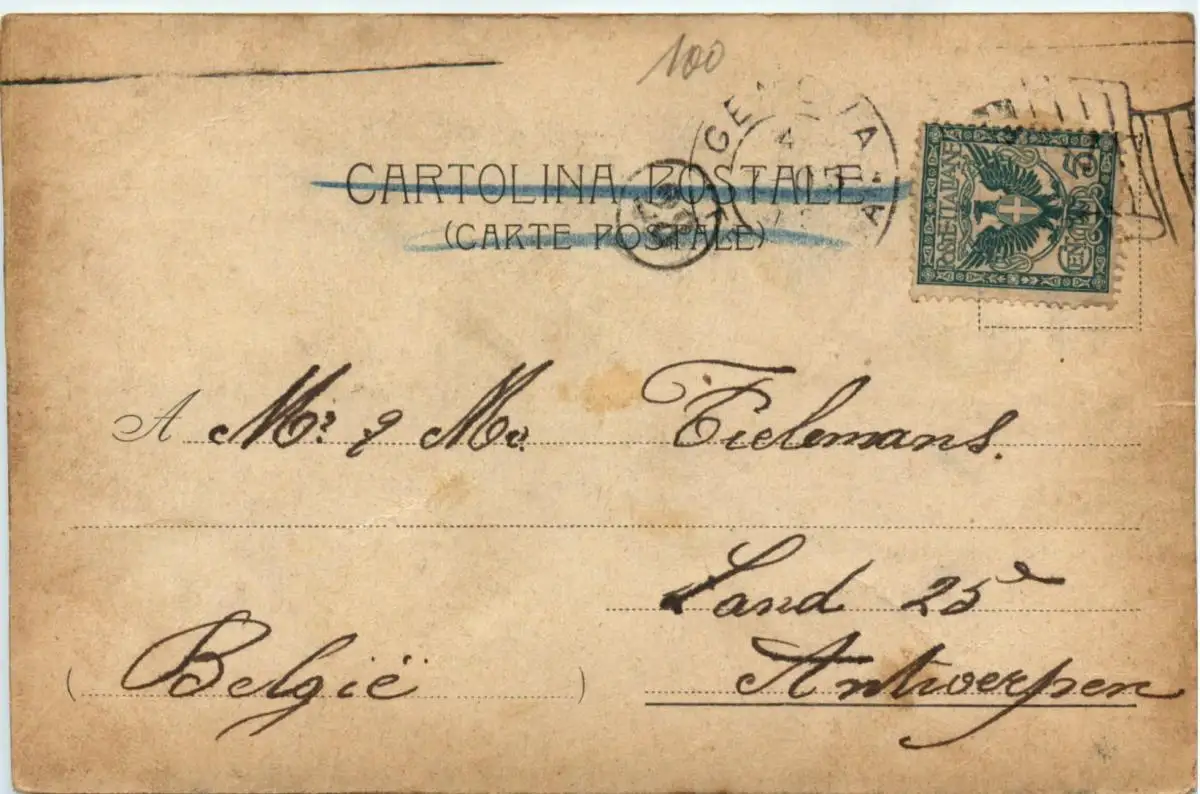 100
GENOVA
CARTOLINA POSTALE
(CARTE POSTALE)
POSTE ITALIANE
CENT. 5
A Mr. & Mv. Tielemans.
Sand 25
Antwerpen
(België)